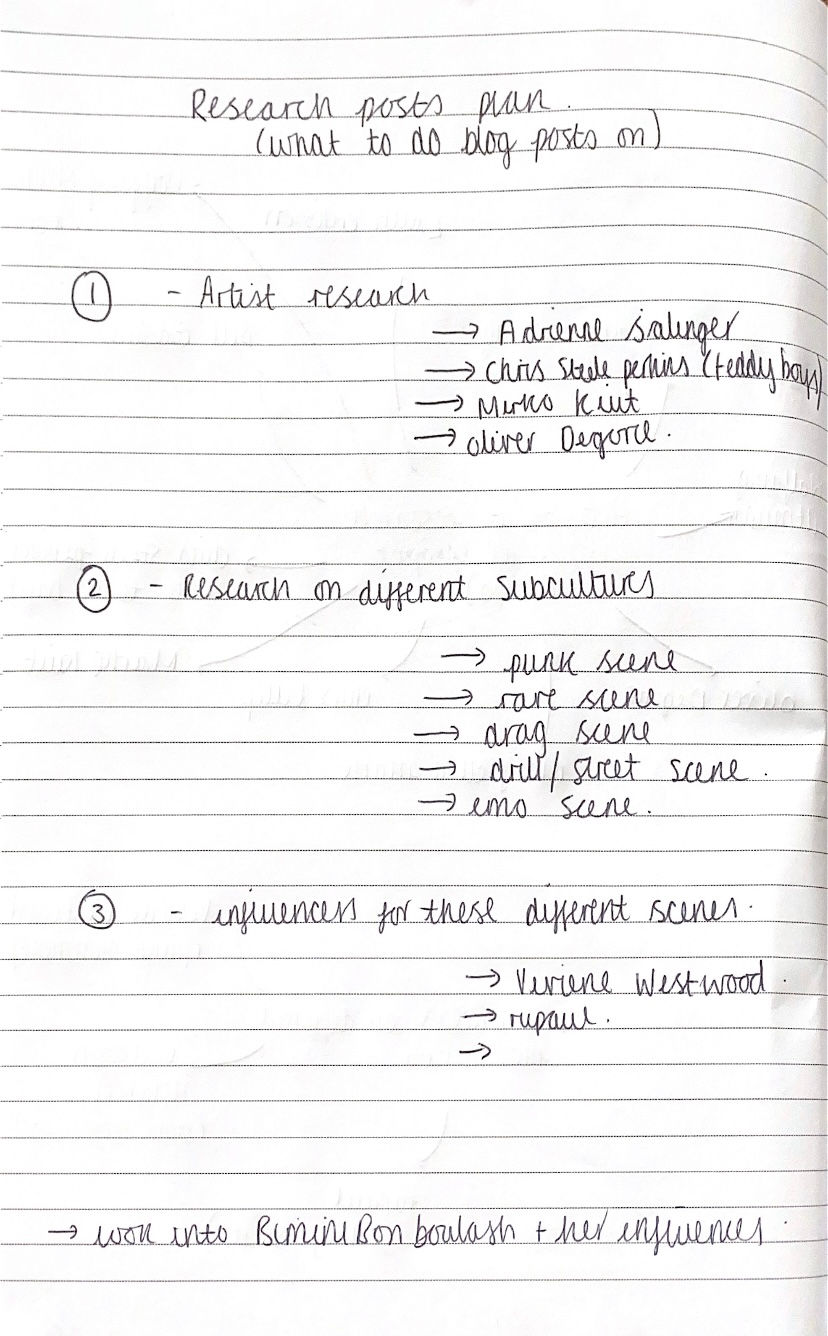 Research posts plan.
(what to do blog posts on)
① - Artist research
→ Adrienne Salinger
→ Chris Steele perkins (teddy boys)
→ Mirko Kiut
→ oliver Degorce.
② - Research on different subcultures
→ punk scene
→ rave scene
→ drag scene
→ drill/street scene.
→ emo scene.
③ - influencers for these different scenes.
→ Viviene Westwood.
→ rupaul.
→
→ look into Bimini Bon boulash + her influences.